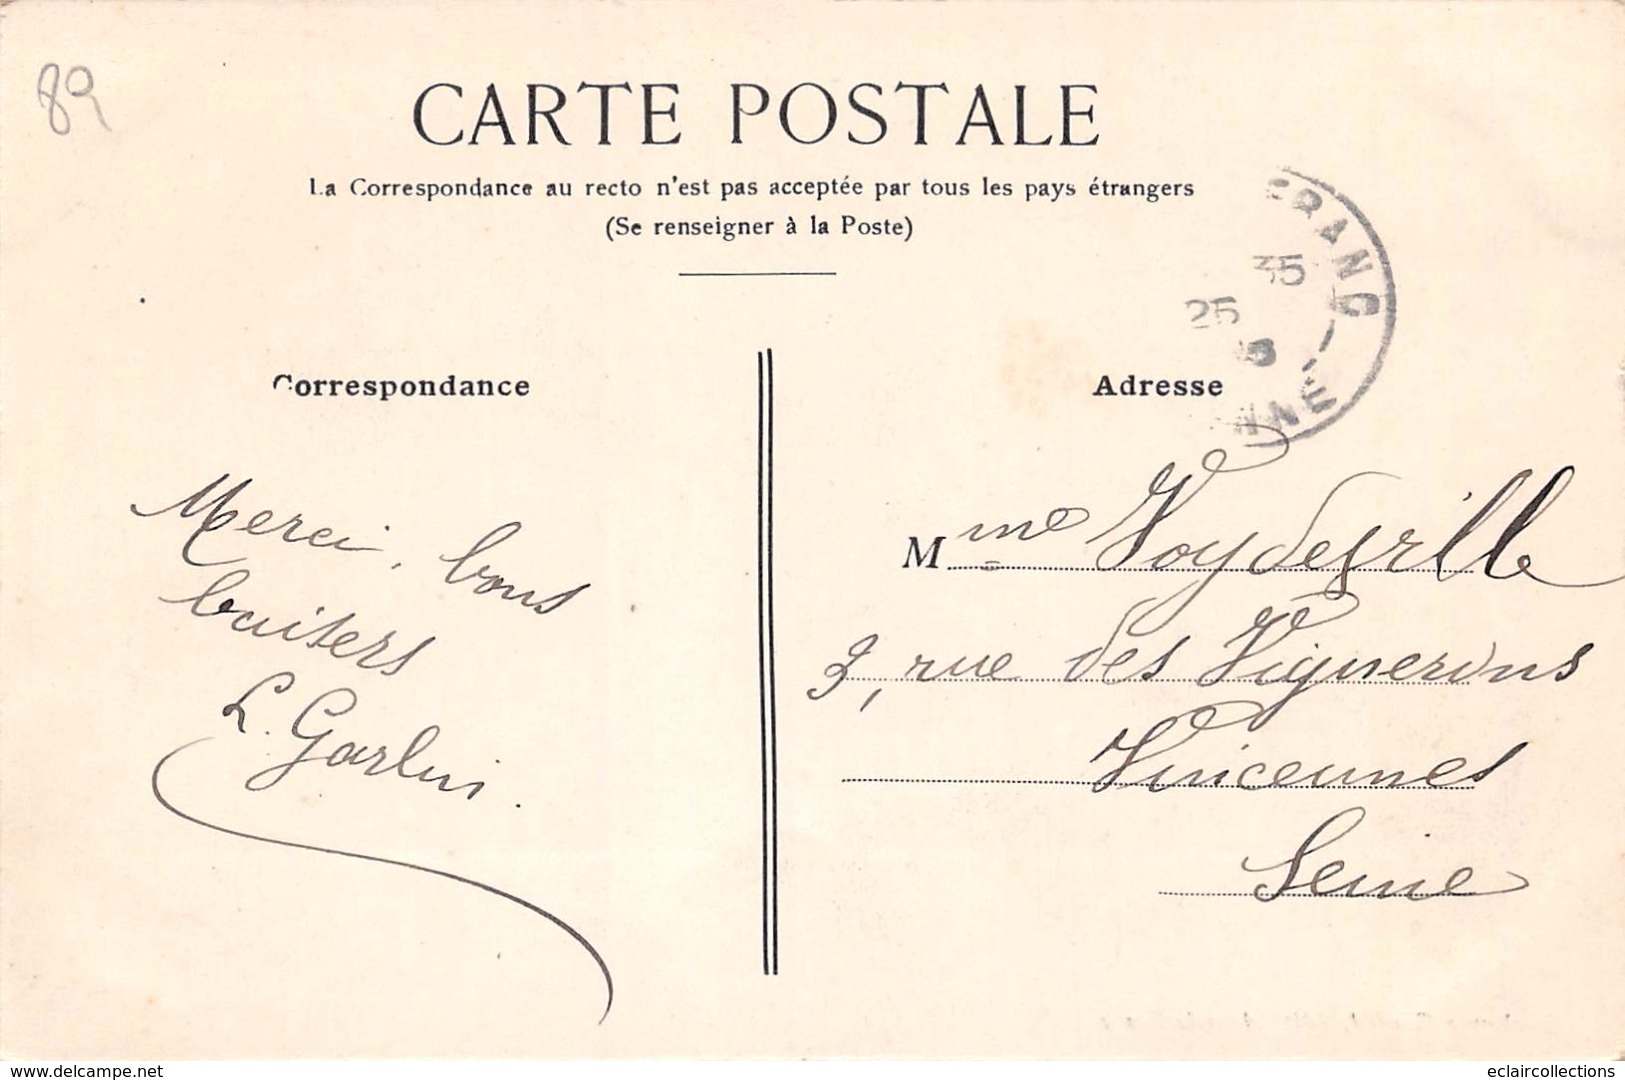 89
CARTE POSTALE
La Correspondance au recto n'est pas acceptée par tous les pays étrangers
(Se renseigner à la Poste)
FRANC
35
25
NNE
Correspondance
Adresse
Merci, bons
baisers
L. Garlin.
Mme
3, rue des Vignerons
Vincennes
Seine
delcampe.net
eclaircollections